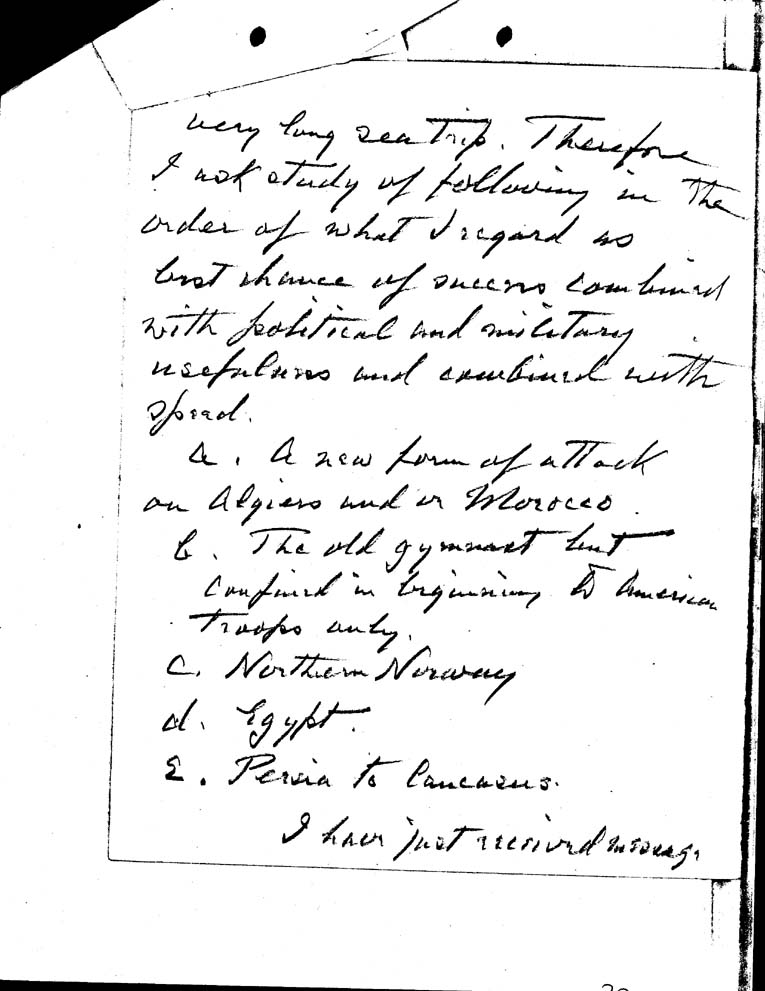 very long sea trip. Therefore
I ask study of following in the
order of what I regard as
best chance of success combined
with political and military
usefulness and combined with
speed.
a. A new form of attack
on Algiers and or Morocco.
b. The old gymnast but
confined in beginning to American
troops only.
c. Northern Norway
d. Egypt.
E. Persia to Caucasus.
I have just received message